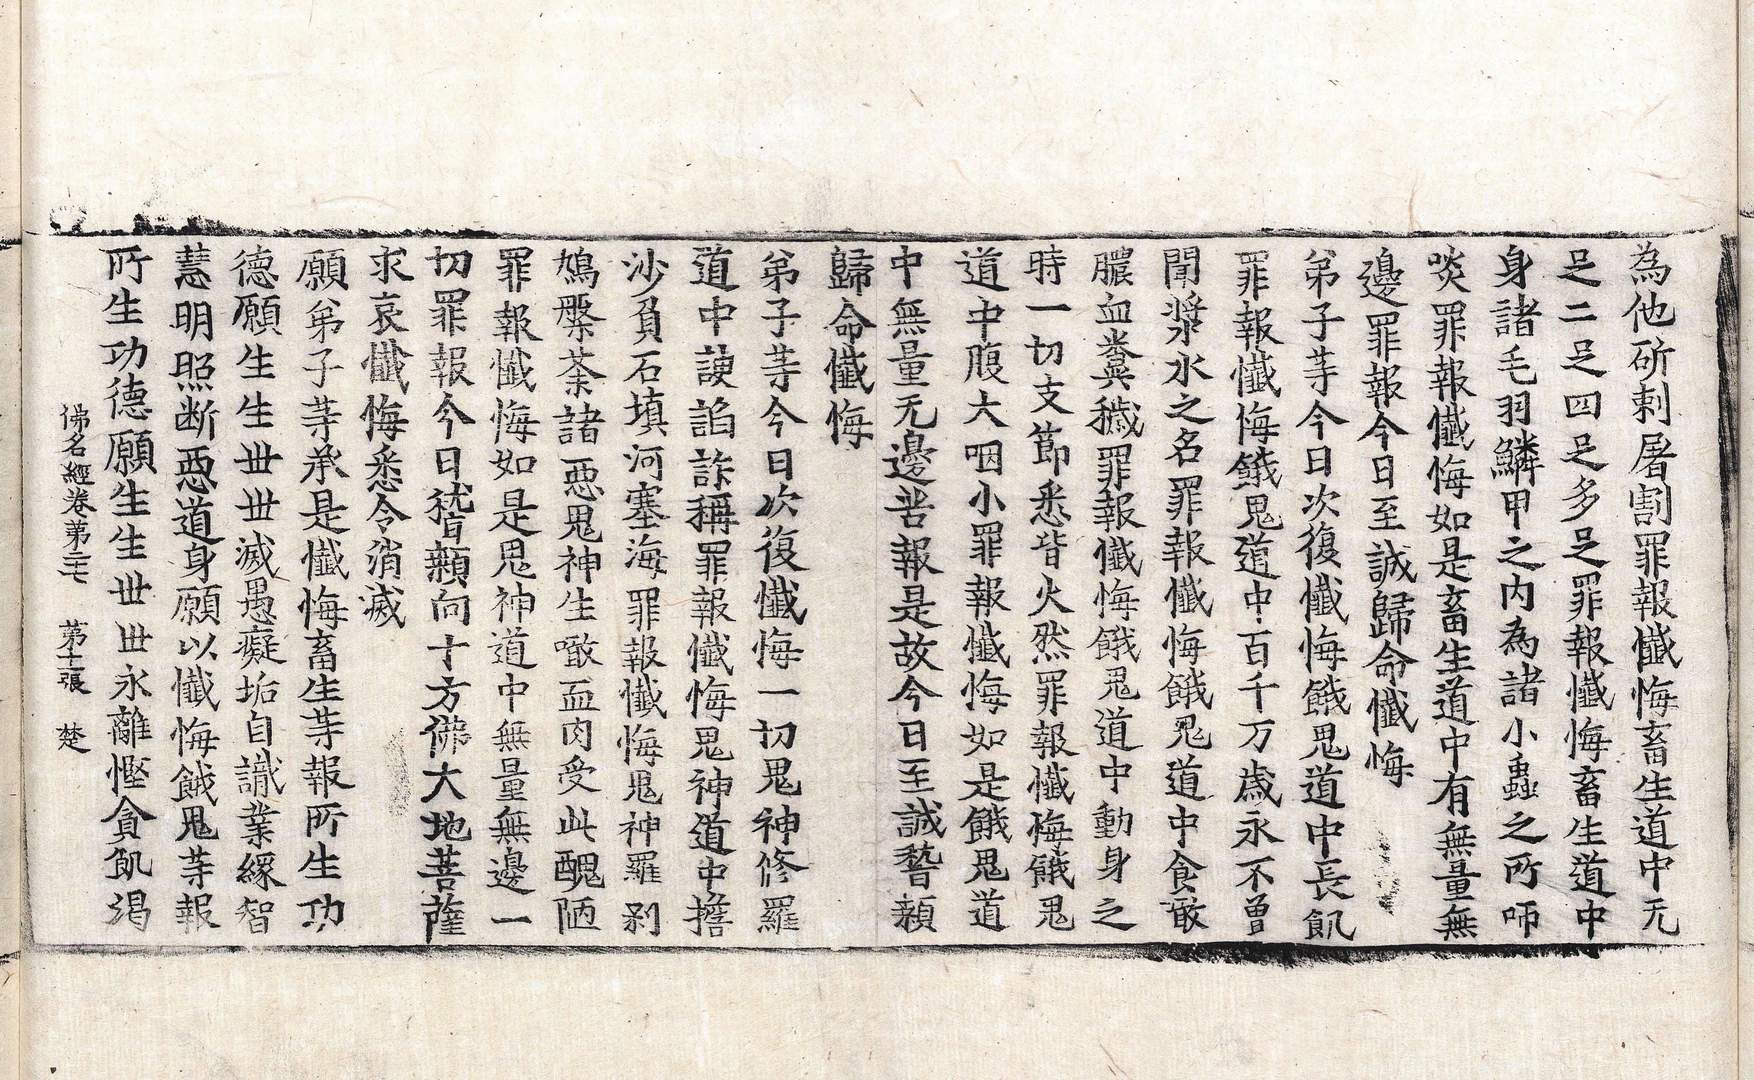 為他斫刺屠割罪報懺悔畜生道中无
足二足四足多足罪報懺悔畜生道中
身諸毛羽鱗甲之內為諸小蟲之所咂
啖罪報懺悔如是畜生道中有無量無
邊罪報今日至誠歸命懺悔
弟子䓁今日次復懺悔餓鬼道中長飢
罪報懺悔餓鬼道中百千万歲永不曾
聞漿水之名罪報懺悔餓鬼道中食噉
膿血糞穢罪報懺悔餓鬼道中動身之
時一切支節悉皆火然罪報懺悔餓鬼
道中腹大咽小罪報懺悔如是餓鬼道
中無量无邊苦報是故今日至誠稽顙
歸命懺悔
弟子䓁今日次復懺悔一切鬼神修羅
道中諛諂詐稱罪報懺悔鬼神道中擔
沙負石填河塞海罪報懺悔鬼神羅剎
鳩槃荼諸惡鬼神生噉血肉受此醜陋
罪報懺悔如是鬼神道中無量無邊一
切罪報今日稽顙向十方佛大地菩薩
求哀懺悔悉令消滅
願弟子䓁承是懺悔畜生䓁報所生功
德願生生丗丗滅愚癡垢自識業緣智
慧明照断惡道身願以懺悔餓鬼䓁報
所生功德願生生丗丗永離慳貪飢渴
佛名經卷第二十七 第十二張 楚